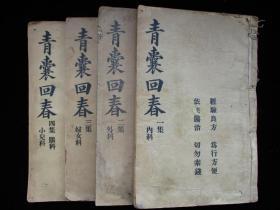 經驗良方 為行方便
依 醫治 切勿索錢
青囊回春 一集
內科
青囊回春 二集
外科
青囊回春 三集
婦女科
青囊回春 四集 眼科
小兒科